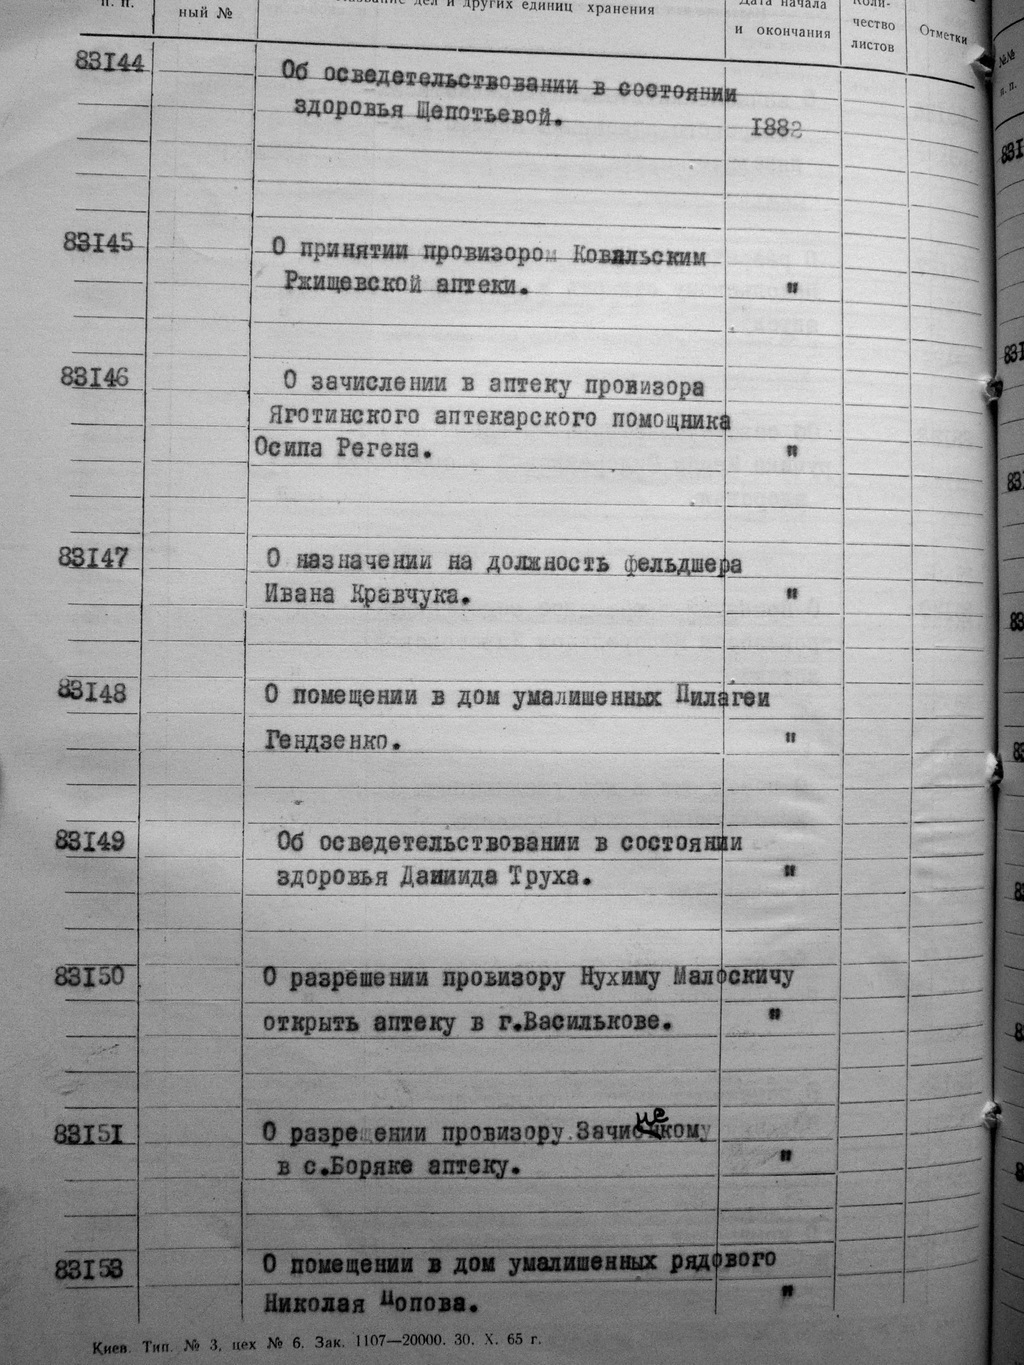 п. п.
ный №
Название дел и других единиц хранения
Дата начала
и окончания
Коли-
чество
листов
Отметки
№№
п. п.
83144
Об осведетельствовании в состоянии
здоровья Щепотьевой.
1882
83145
О принятии провизором Ковальским
Ржищевской аптеки.
"
83146
О зачислении в аптеку провизора
Яготинского аптекарского помощника
Осипа Регена.
"
83147
О назначении на должность фельдшера
Ивана Кравчука.
"
83148
О помещении в дом умалишенных Пилагеи
Гендзенко.
"
83149
Об осведетельствовании в состоянии
здоровья Даниида Труха.
"
83150
О разрешении провизору Нухиму Малоскичу
открыть аптеку в г.Василькове.
"
83151
О разре ении провизору
в с.Боряке аптеку.
"
83153
О помещении в дом умалишенных рядового
Николая Попова.
"
Киев. Тип. № 3, цех № 6. Зак. 1107—20000. 30. X. 65 г.